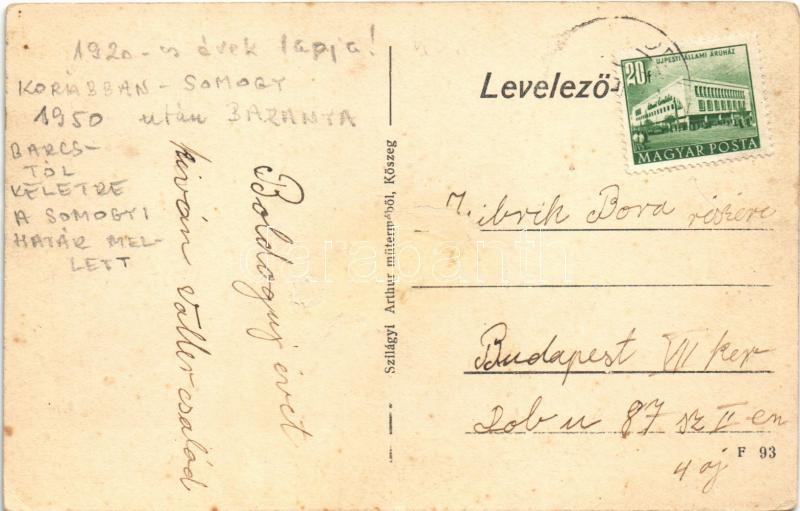 1920-as évek lapja!
KORÁBBAN - SOMOGY
1950 után BARANYA
BARCS-
TÓL
KELETRE
A SOMOGYI
HATÁR MEL-
LETT
Boldogúj évet
kiván Valler család
Szilágyi Arthur műterméből, Kőszeg
Levelező-
20f
ÚJPESTI ÁLLAMI ÁRUHÁZ
MAGYAR POSTA
Bora részére
Budapest VII ker
Dob u 87 sz II em
4 aj
F 93
darabanth